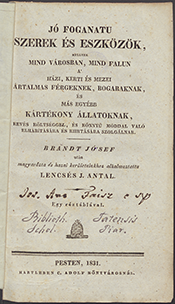 JÓ FOGANATU
SZEREK ÉS ESZKÖZÖK,
MIND VÁROSBAN, MIND FALUN
A'
HÁZI, KERTI ÉS MEZEI
ÁRTALMAS FÉRGEKNEK, BOGARAKNAK,
ÉS
MÁS EGYÉBB
KÁRTÉKONY ÁLLATOKNAK,
KEVÉS KÖLTSÉGGEL, ÉS KÖNNYŰ MÓDDAL VALÓ
ELHÁRITÁSÁRA ÉS KIIRTÁSÁRA SZOLGÁLNAK.
BRANDT JÓSEF
után
magyarázta és hazai környületeinkhez alkalmaztatta
LENCSÉS J. ANTAL.
Jos. Ant.
Egy réztáblával.
Biblioth.
Schol. Piar.
PESTEN, 1831.
HARTLEBEN C. ADOLF KÖNYVÁROSNÁL.